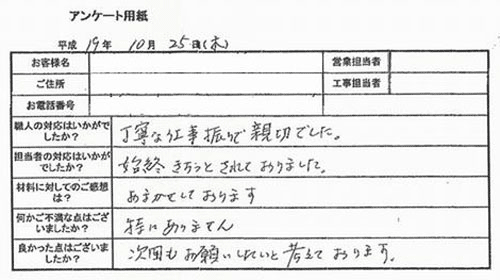 アンケート用紙
平成 19年 10月 25日(木)
お客様名 営業担当者
ご住所 工事担当者
お電話番号
職人の対応はいかがでしたか? 丁寧な仕事振りで親切でした。
担当者の対応はいかがでしたか? 始終きちっとされておりました。
材料に対してのご感想は? おまかせしております
何かご不満な点はございましたか? 特にありません
良かった点はございましたか? 次回もお願いしたいと考えております。